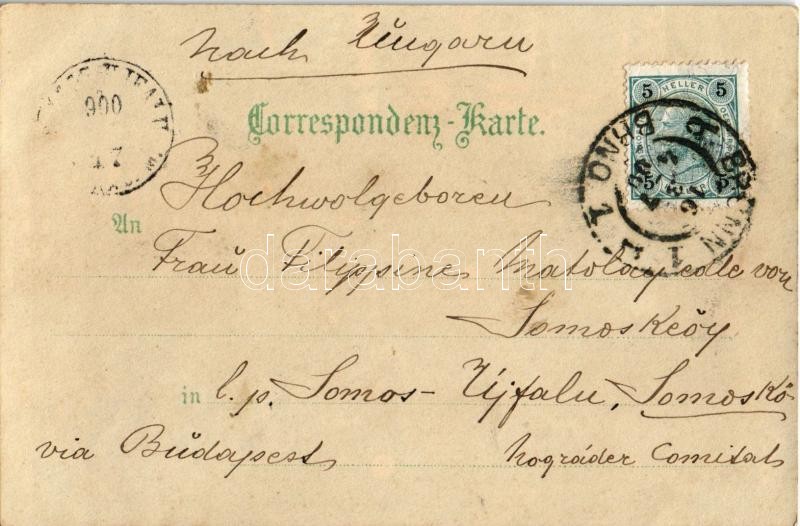 nach Ungarn
Correspondenz-Karte.
5 HELLER 5
BRÜNN 1
BRNO 1
900
Hochwolgeboren
An
Frau Filippine Matolay edle von
Somosköy
in l. p. Somos-Ujfalu, Somoskö
via Budapest Nográder Comitat
darabanth